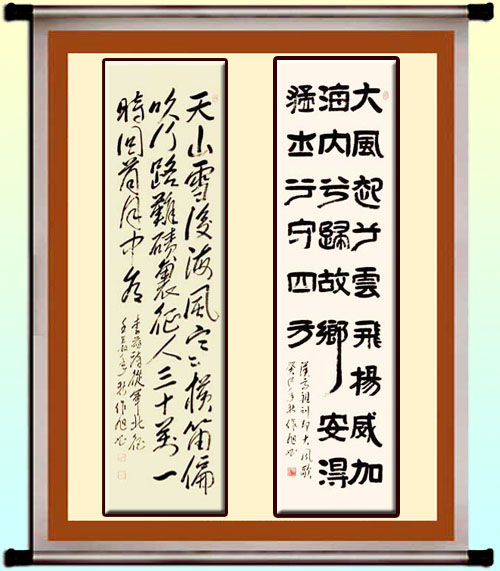 大風起兮雲飛揚威加
海内兮歸故鄉安得
猛士兮守四方
漢高祖劉邦大風歌
癸巳年秋作旭书
天山雪後海風寒橫笛偏
吹行路難磧裏征人三十萬一
時回首月中看
李益詩從軍北征
秋作旭书